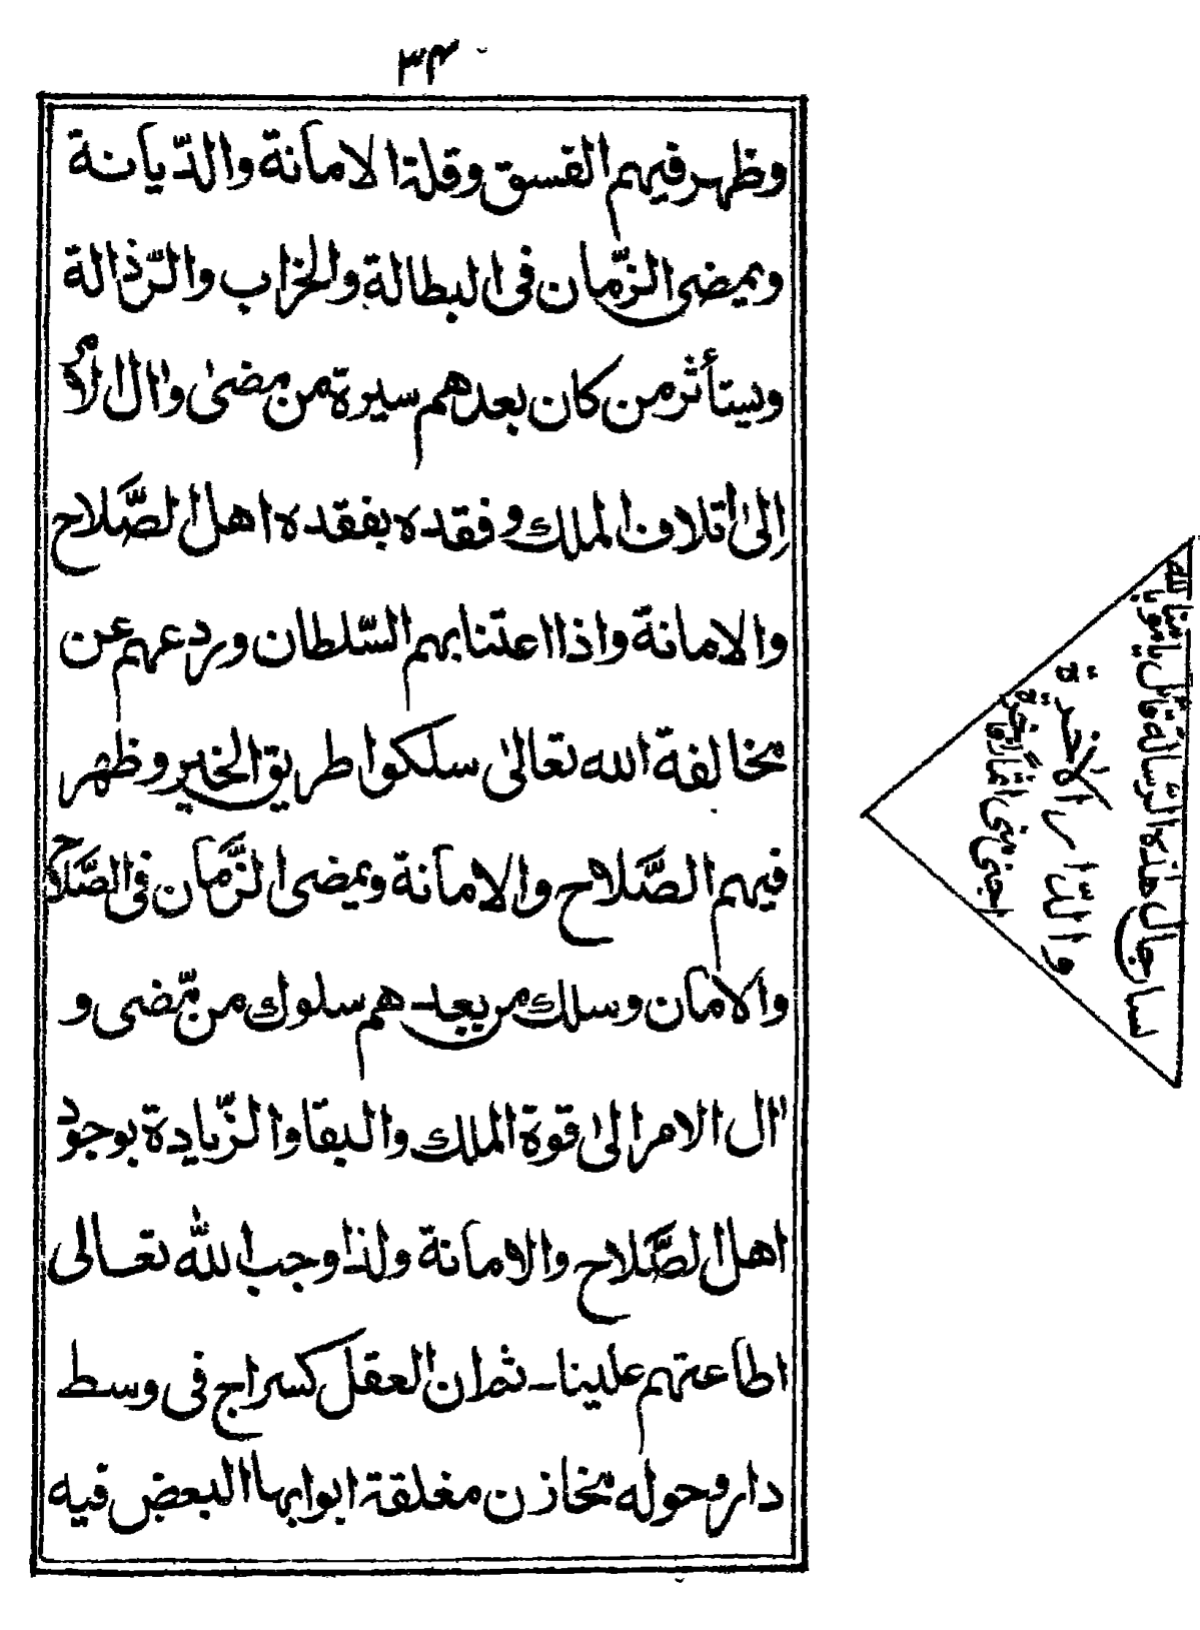 ٣٤
وظهر فيهم الفسق وقلة الامانة والدّيانة
ويمضى الزّمان فى البطالة والخراب والرّذالة
ويستأثر من كان بعدهم سيرة من مضىٰ واٰل الامر
إلىٰ اتلاف الملك وفقده بفقده اهل الصَّلاح
والامانة واذا اعتنا بهم السّلطان وردعهم عن
مخالفة الله تعالىٰ سلكوا طريق الخير وظهر
فيهم الصَّلاح والامانة ويمضى الزَّمان فى الصَّلاح
والامان وسلك من بعدهم سلوك من مّضى و
اٰل الامر الىٰ قوة الملك والبقا والزّيادة بوجود
اهل الصَّلاح والامانة ولذا وجب اللّٰه تعالى
اطاعتهم علينا۔ ثم ان العقل كسراج فى وسط
دار وحوله مخازن مغلقة ابوابها البعض فيه
هٰذه الرّسالة قائل
والدّار الاٰخرة